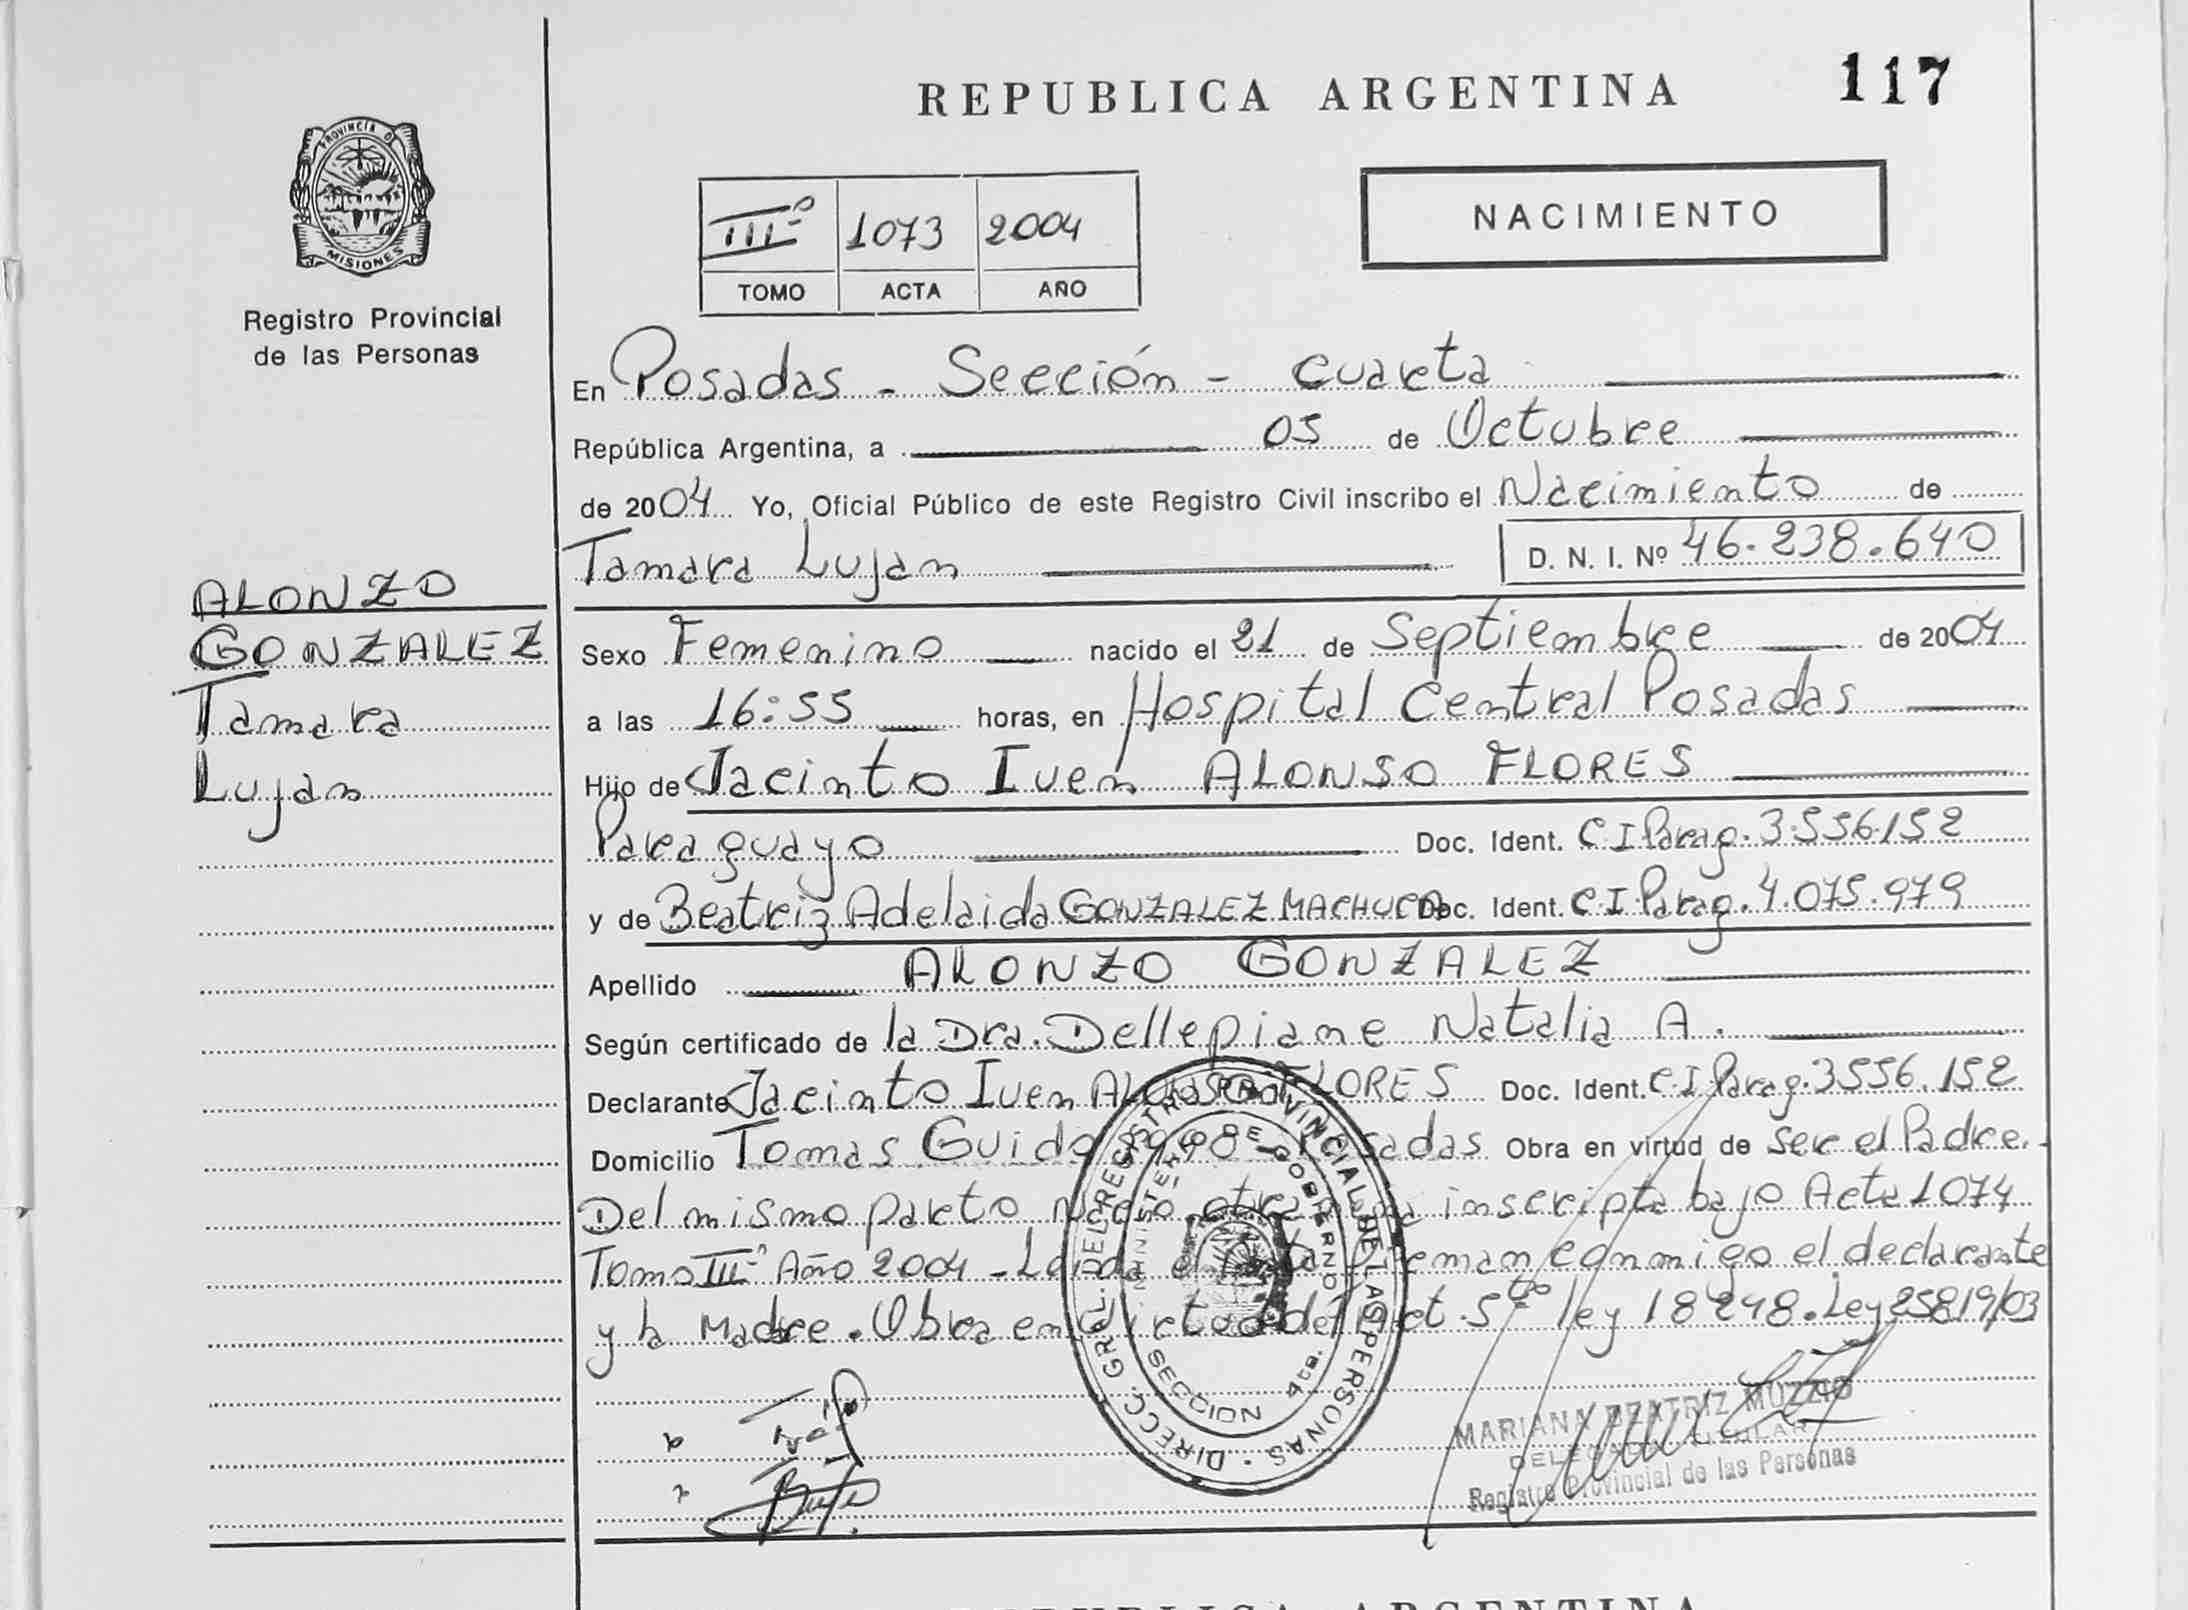 REPUBLICA ARGENTINA
117
PROVINCIA D
MISIONES
Registro Provincial
de las Personas
IIIº 1073 2004
TOMO ACTA AÑO
NACIMIENTO
En Posadas - Sección - Cuarta
República Argentina, a 05 de Octubre
de 2004 Yo, Oficial Público de este Registro Civil inscribo el Nacimiento de
Tamara Lujan D. N. I. Nº 46.238.640
ALONZO
GONZALEZ
Tamara
Lujan
Sexo Femenino nacido el 21 de Septiembre de 2004
a las 16:55 horas, en Hospital Central Posadas
Hijo de Jacinto Iven ALONSO FLORES
Paraguayo Doc. Ident. C I Parag. 3.556.152
y de Beatriz Adelaida GONZALEZ MACHUCA Doc. Ident. C I Parag. 4.075.979
Apellido ALONZO GONZALEZ
Según certificado de la Dra. Dellepiane Natalia A.
Declarante Jacinto Iven ALONSO FLORES Doc. Ident. C.I. Parag. 3556.152
Domicilio Tomas Guido Posadas Obra en virtud de ser el Padre.
Del mismo parto Nació otra inscripta bajo Acta 1074
Tomo IIIº Año 2004 - Leida el Acta Firman conmigo el declarante
y la Madre. Obra en Virtud del Art. 5to ley 18248. Ley 25819/03
DIRECC. GRAL. DEL REGISTRO PROVINCIAL DE LAS PERSONAS
MINISTERIO DE GOBIERNO
SECCION 4ta.
MARIANA BEATRIZ MUZZIO
DELEGADA TITULAR
Registro Provincial de las Personas
REPUBLICA ARGENTINA